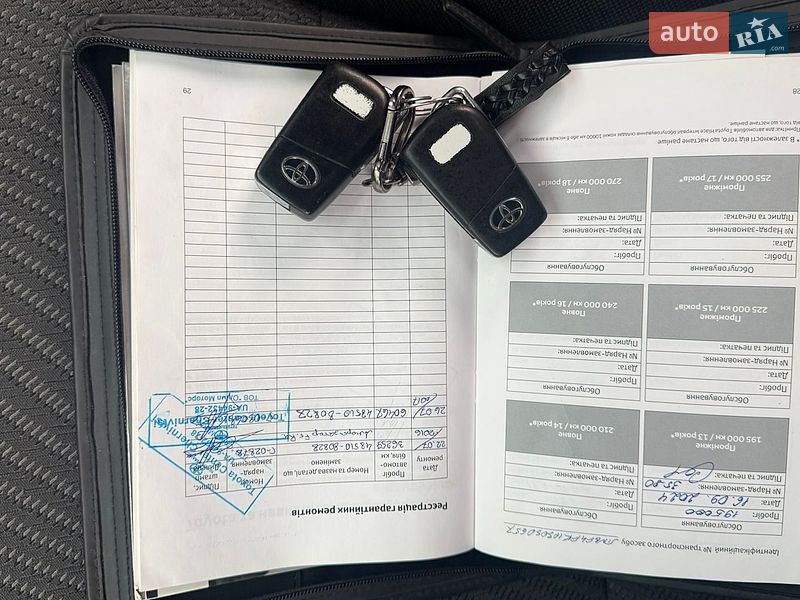 auto RIA.com
29
Реєстрація гарантійних ремонтів
Дата ремонту
Пробіг автомо-біля, км
Номер та назва деталі, що замінено
Номер наряд-замовлення
22.07
2016
36259
48510-80828
26.07
2017
60467
48510-80827
UA-58492-28
28
Ідентифікаційний № транспортного засобу
195 000 км / 13 років*
Проміжне
Обслуговування
Пробіг: 195000
Дата: 16.09.2024
№ Наряд-замовлення:
Підпис та печатка:
210 000 км / 14 років*
Повне
Обслуговування
Пробіг:
Дата:
№ Наряд-замовлення:
Підпис та печатка:
225 000 км / 15 років*
Проміжне
Обслуговування
Пробіг:
Дата:
№ Наряд-замовлення:
Підпис та печатка:
240 000 км / 16 років*
Повне
Обслуговування
Пробіг:
Дата:
№ Наряд-замовлення:
Підпис та печатка:
255 000 км / 17 років*
Проміжне
Обслуговування
Пробіг:
Дата:
№ Наряд-замовлення:
Підпис та печатка:
270 000 км / 18 років*
Повне
Обслуговування
Пробіг:
Дата:
№ Наряд-замовлення:
Підпис та печатка:
* В залежності від того, що настане раніше